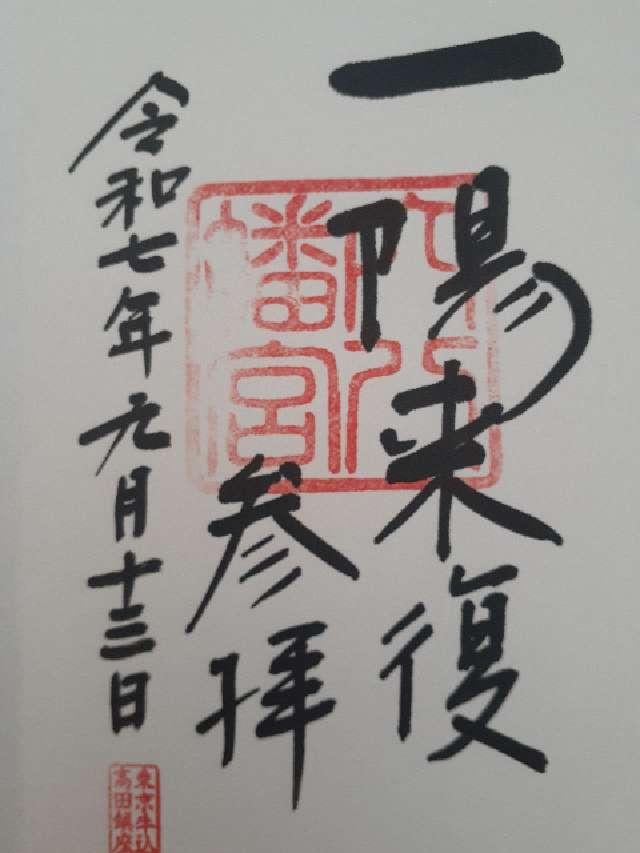 一陽来復
参拝
令和七年元月十三日
幡宮
東京牛込
高田鎮座